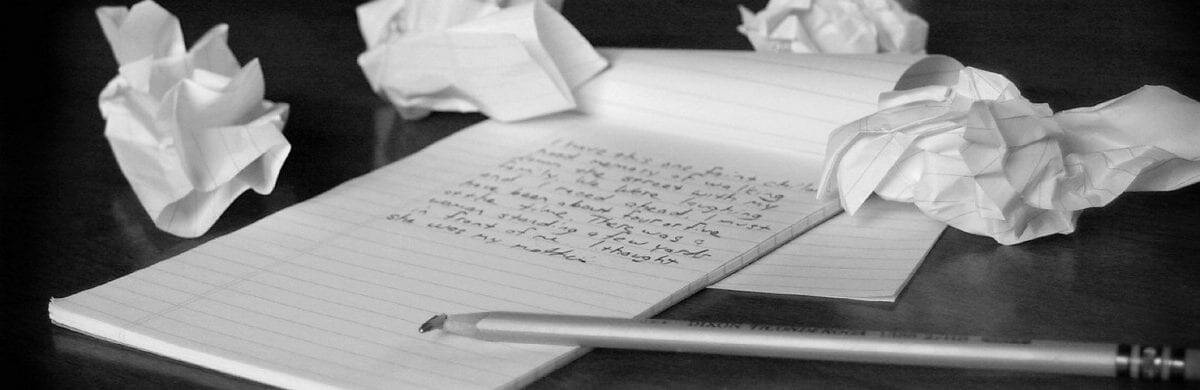 I have this one faint child
hood memory of walking
down the street with my
family. We were laughing
and I raced ahead. I must
have been about four or five
at the time. There was a
woman standing a few yards
in front of me. I thought
she was my mother.
DIXON TICONDEROGA